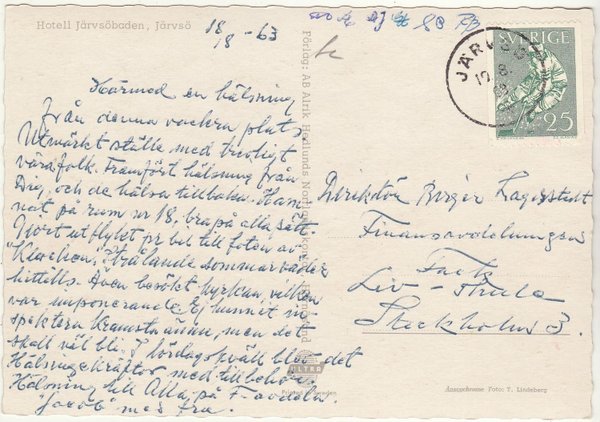 Hotell Järvsöbaden, Järvsö
18/8-63
Härmed en hälsning
från denna vackra plats
Utmärkt ställe med trevligt
värdfolk. Framfört hälsning från
Dig, och de hälsa tillbaka. Ham-
nat på rum nr 18, bra på alla sätt.
Gjort utflykt pr bil till foten av
"Klacken". Strålande sommarväder
hittills. Även besökt kyrkan, vilken
var imponerande. Ej hunnit in-
spektera Kramstalinien, men det
skall väl bli. I lördagskväll blev det
Hälsingekräftor med tillbehör.
Hälsning till Alla på F-avdeln.
"Jacob" med fru.
Förlag: AB Alrik Hedlunds
ULTRA
SVERIGE
25
JÄRVSÖ
Direktör Birger Lagerstedt
Finansavdelningen
Fack
Liv-Thule
Stockholm 3.
Ansacchrome Foto: T. Lindeberg